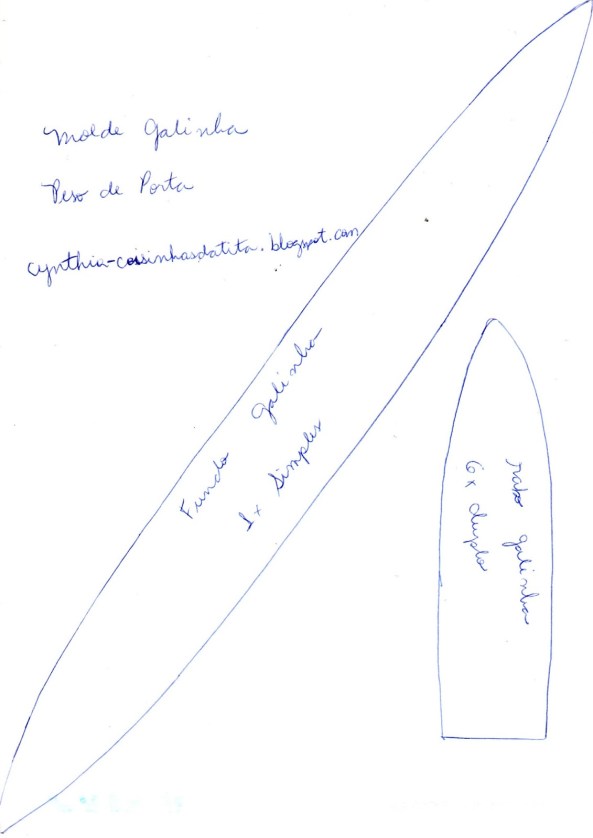 Molde Galinha
Peso de Porta
cynthia-coisinhasdatita.blogspot.com
Fundo galinha
1x Simples
rabo galinha
6x duplo